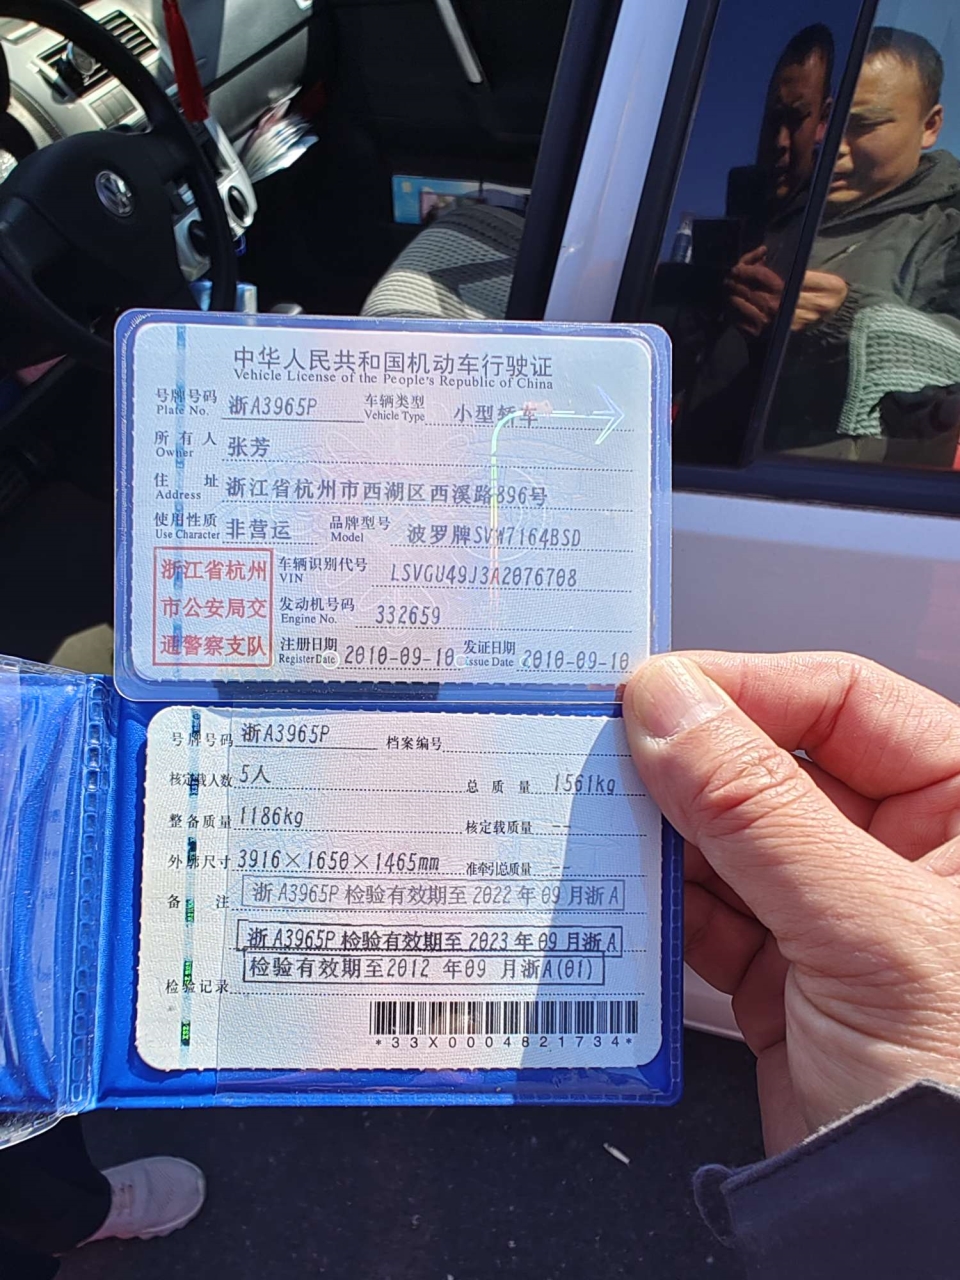 中华人民共和国机动车行驶证
Vehicle License of the People's Republic of China
号牌号码 Plate No. 浙A3965P 车辆类型 Vehicle Type 小型轿车
所有人 Owner 张芳
住址 Address 浙江省杭州市西湖区西溪路896号
使用性质 Use Character 非营运 品牌型号 Model 波罗牌SVW7164BSD
浙江省杭州
市公安局交
通警察支队
车辆识别代号 VIN LSVGU49J3A2076708
发动机号码 Engine No. 332659
注册日期 Register Date 2010-09-10 发证日期 Issue Date 2010-09-10
号牌号码 浙A3965P 档案编号
核定载人数 5人 总质量 1561kg
整备质量 1186kg 核定载质量 --
外廓尺寸 3916×1650×1465mm 准牵引总质量 --
备注 浙A3965P 检验有效期至 2022年09月浙A
浙A3965P 检验有效期至 2023年09月浙A
检验有效期至2012 年09 月浙A(01)
检验记录
*33X0004821734*